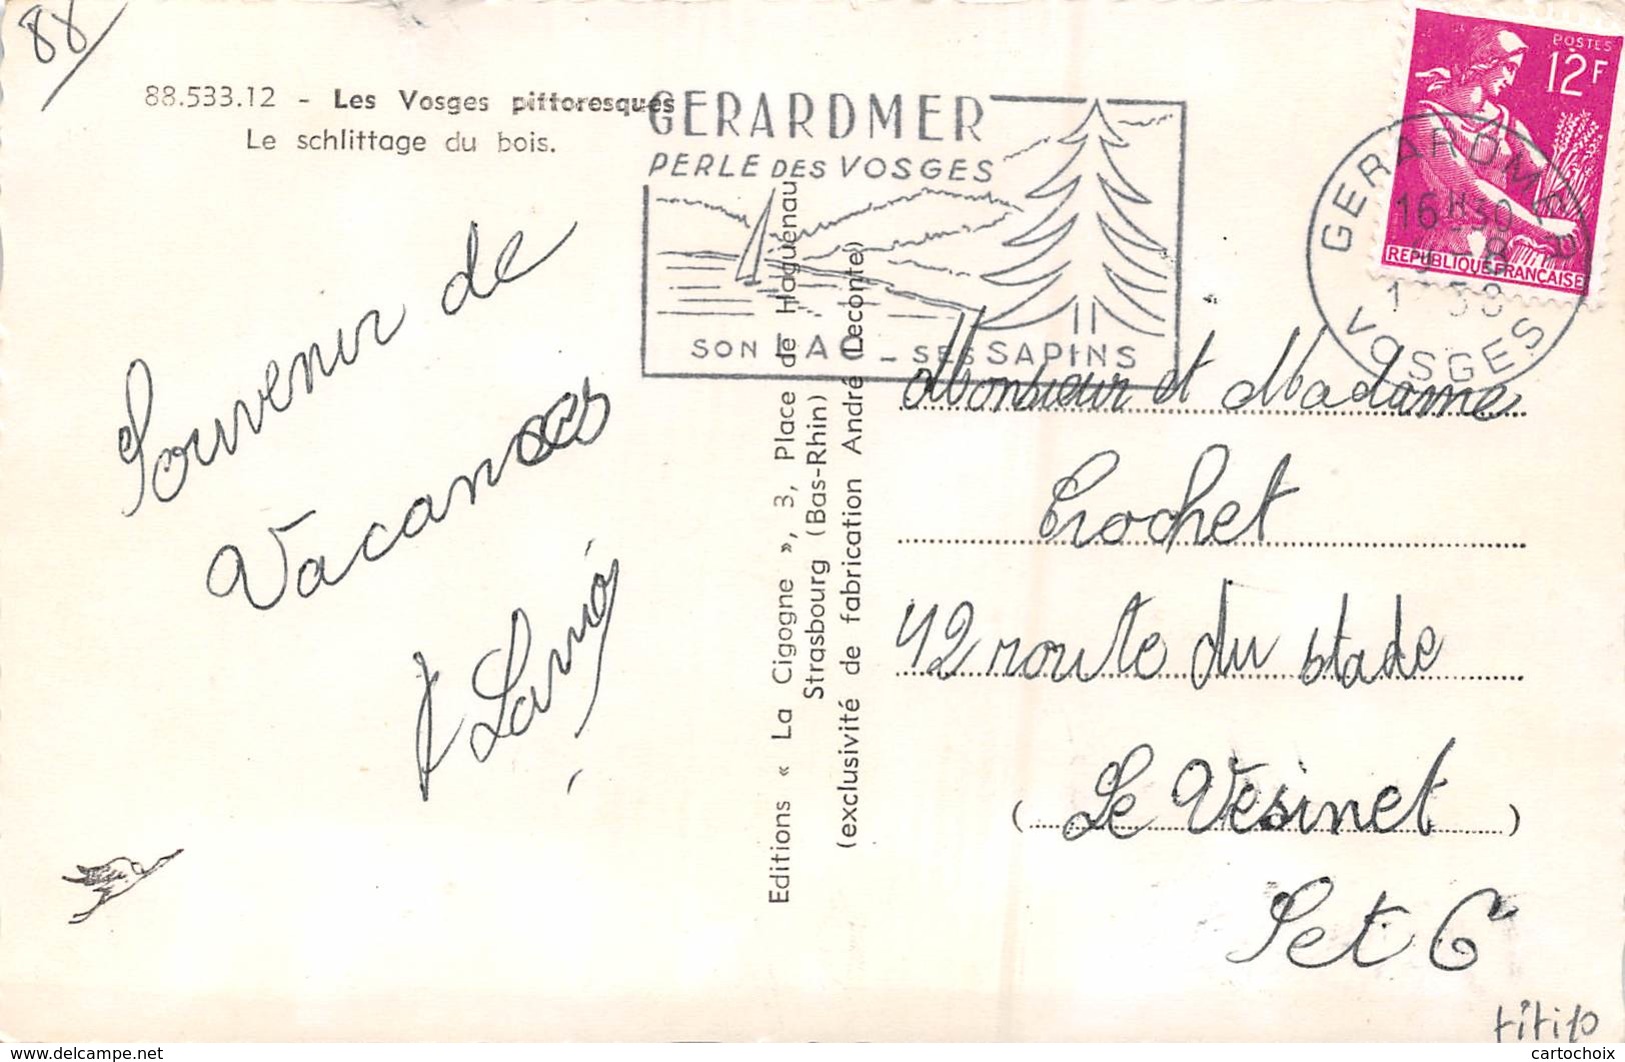 88
88.533.12 - Les Vosges pittoresques
Le schlittage du bois.
GERARDMER
PERLE DES VOSGES
SON LAC _ SES SAPINS
POSTES
12F
REPUBLIQUE FRANÇAISE
GERARDMER
16H30
8
VOSGES
Souvenir de
Vacances
Editions « La Cigogne », 3, Place de Haguenau
Strasbourg (Bas-Rhin)
(exclusivité de fabrication André Leconte)
Monsieur et Madame
Crochet
42 route du stade
(Le Vesinet)
S et O
titi10
cartochoix